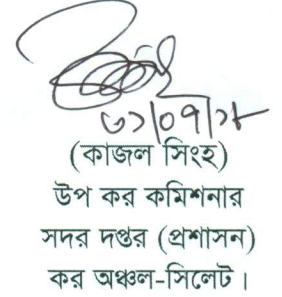 ৩১/০৭/১৮
(কাজল সিংহ)
উপ কর কমিশনার
সদর দপ্তর (প্রশাসন)
কর অঞ্চল-সিলেট।